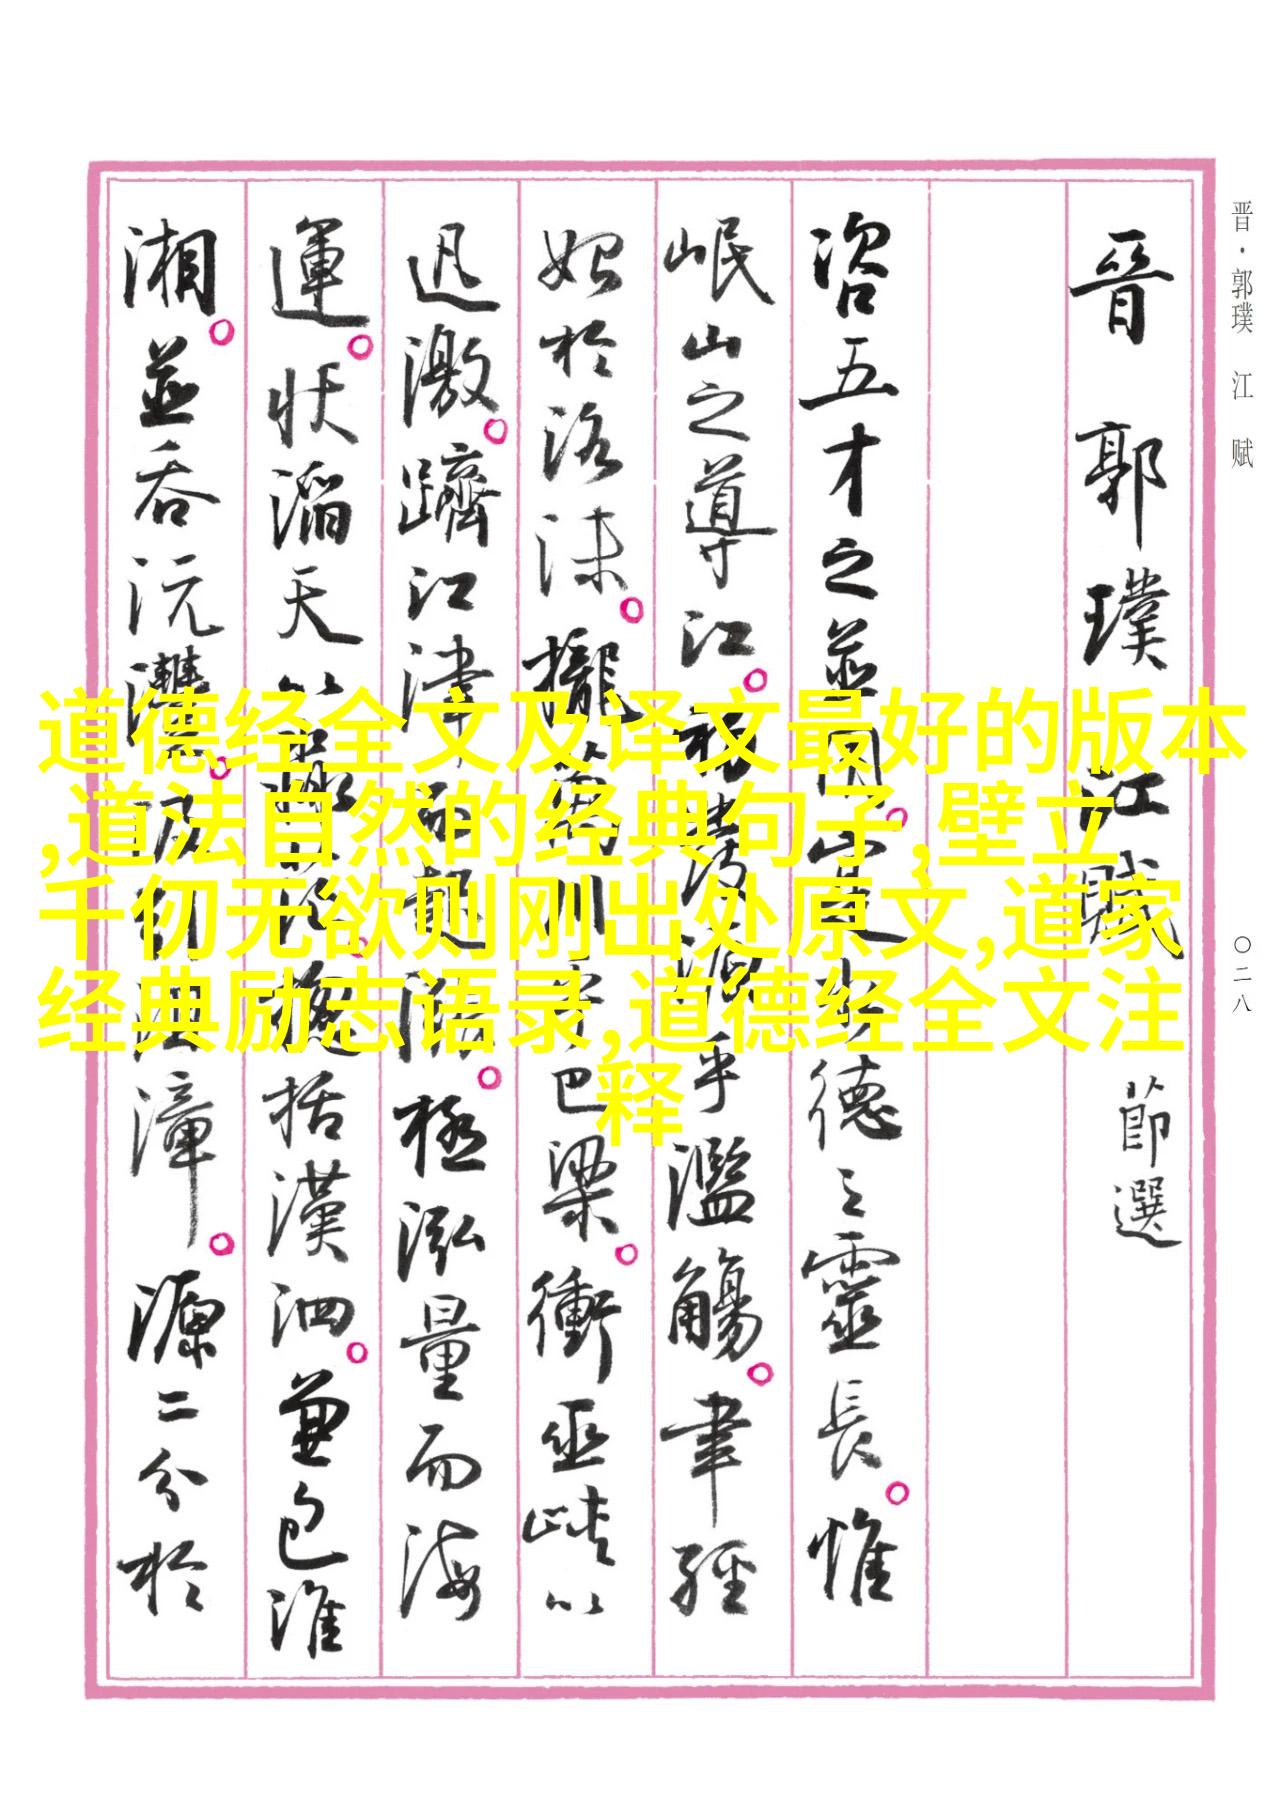 晋·郭璞 江 赋
〇二八
晉 郭璞 江賦 節選
咨五才之並用。寔水德之靈長。惟
岷山之導江。初發源乎濫觴。聿經
始於洛沬。攏萬川乎巴梁。衝巫峽以
迅激。躋江津而起漲。極泓量而海
運。狀滔天以淼茫。總括漢泗。兼包淮
湘。並吞沅澧。汲引沮漳。源二分於
道德经全文及译文最好的版本
,道法自然的经典句子,壁立
千仞无欲则刚出处原文,道家
经典励志语录,道德经全文注
释